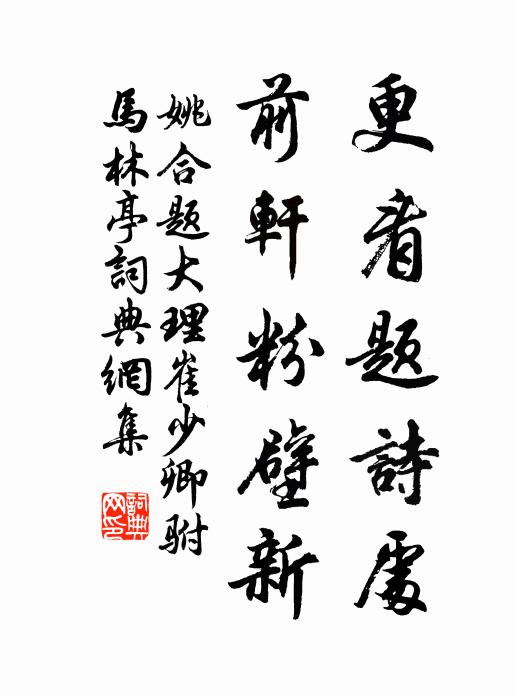 更看題詩處
前軒粉壁新
姚合題大理崔少卿駙
馬林亭詞典網集
詞典
网印